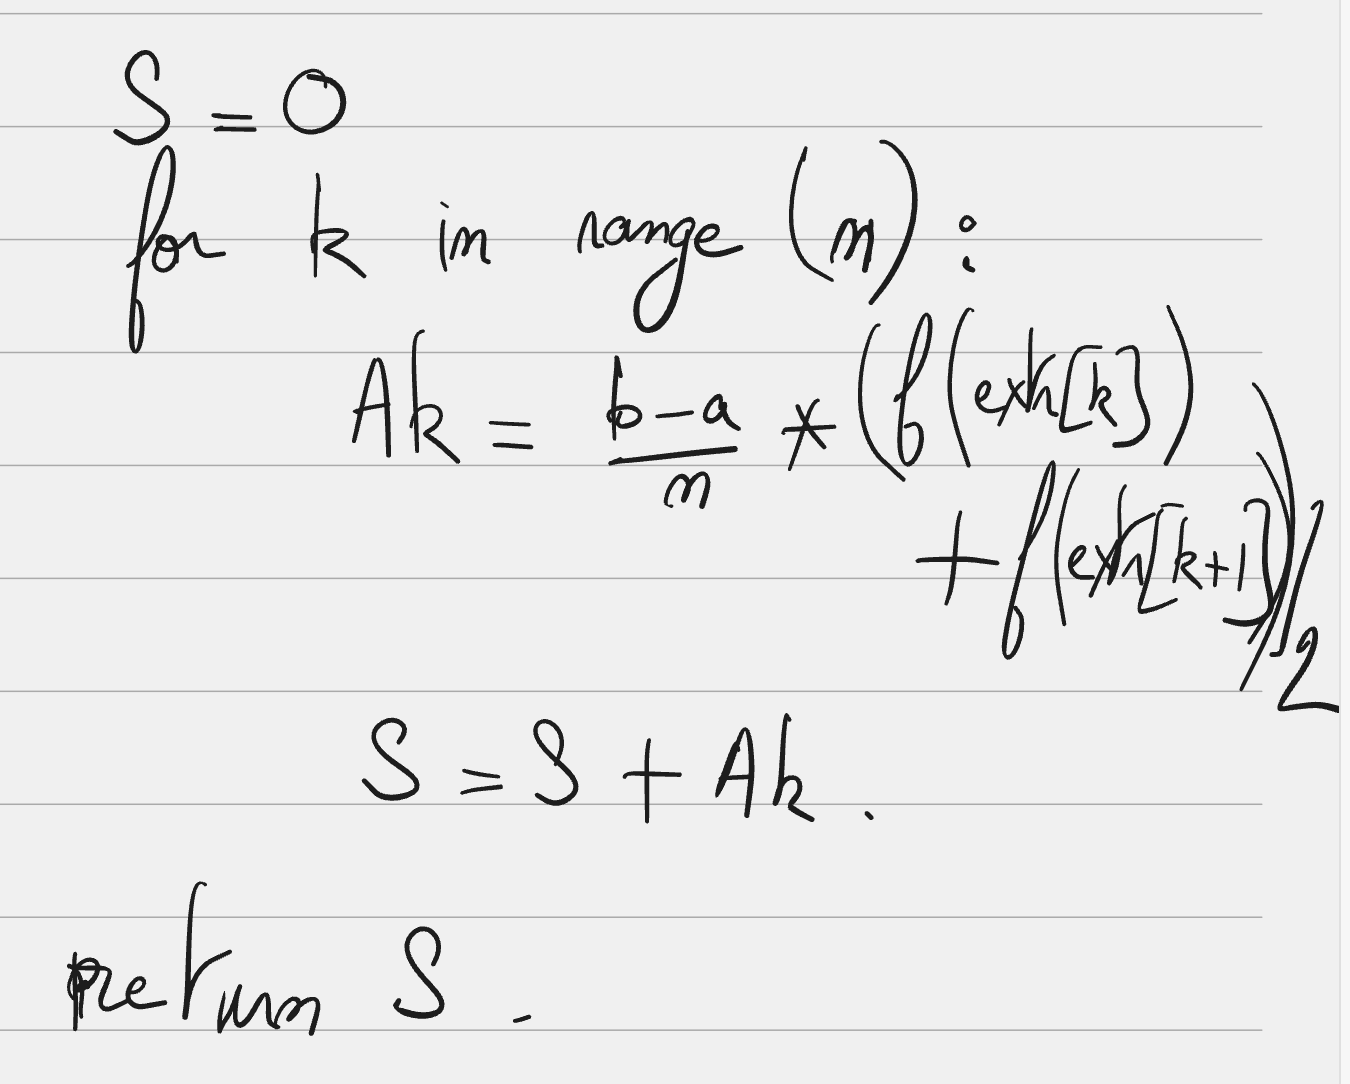 S = 0
for k in range (n) :
Ak = b-a/n * (f(exh[k])
+ f(exh[k+1]))/2
S = S + Ak .
return S .